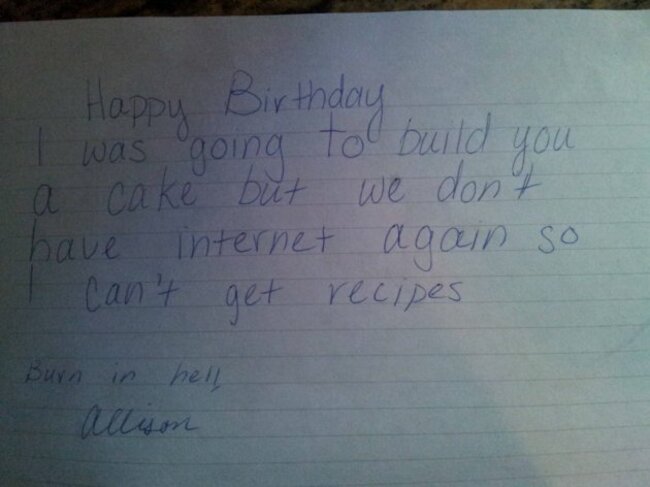 Happy Birthday
I was going to build you
a cake but we don't
have internet again so
I can't get recipes
Burn in hell
Allison